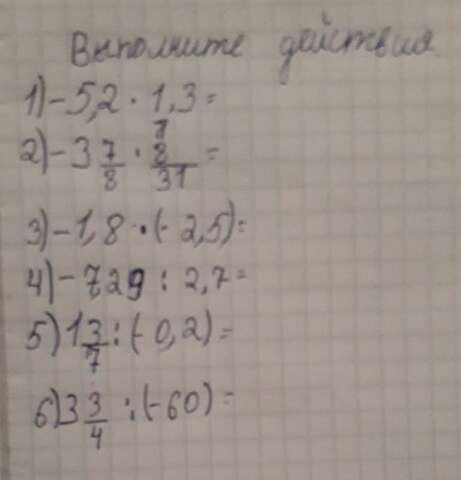 Выполните действия.
1) -5,2 · 1,3 =
2) -3 7/8 · 8/31 =
3) -1,8 · (-2,5) =
4) -729 : 2,7 =
5) 1 3/7 : (-0,2) =
6) 3 3/4 : (-60) =